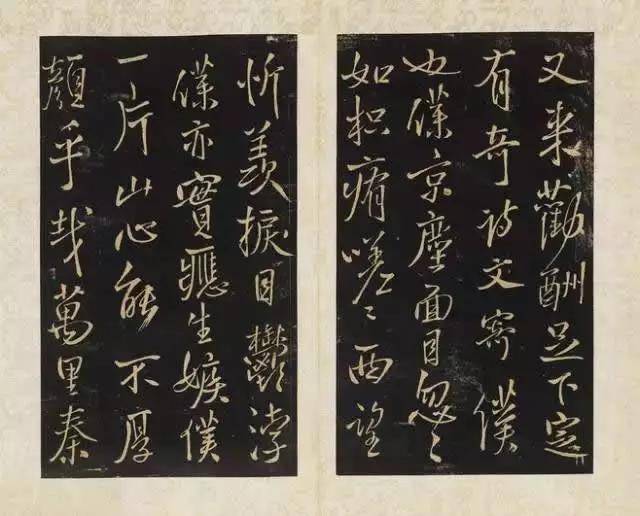 又来勸酬足下定
有奇詩文寄僕
也僕京塵面目忽〻
如枳痏嗟〻西望
忻羨捩目鬱浡
僕亦實應生嫉僕
一片山心能不厚
顏乎哉萬里秦